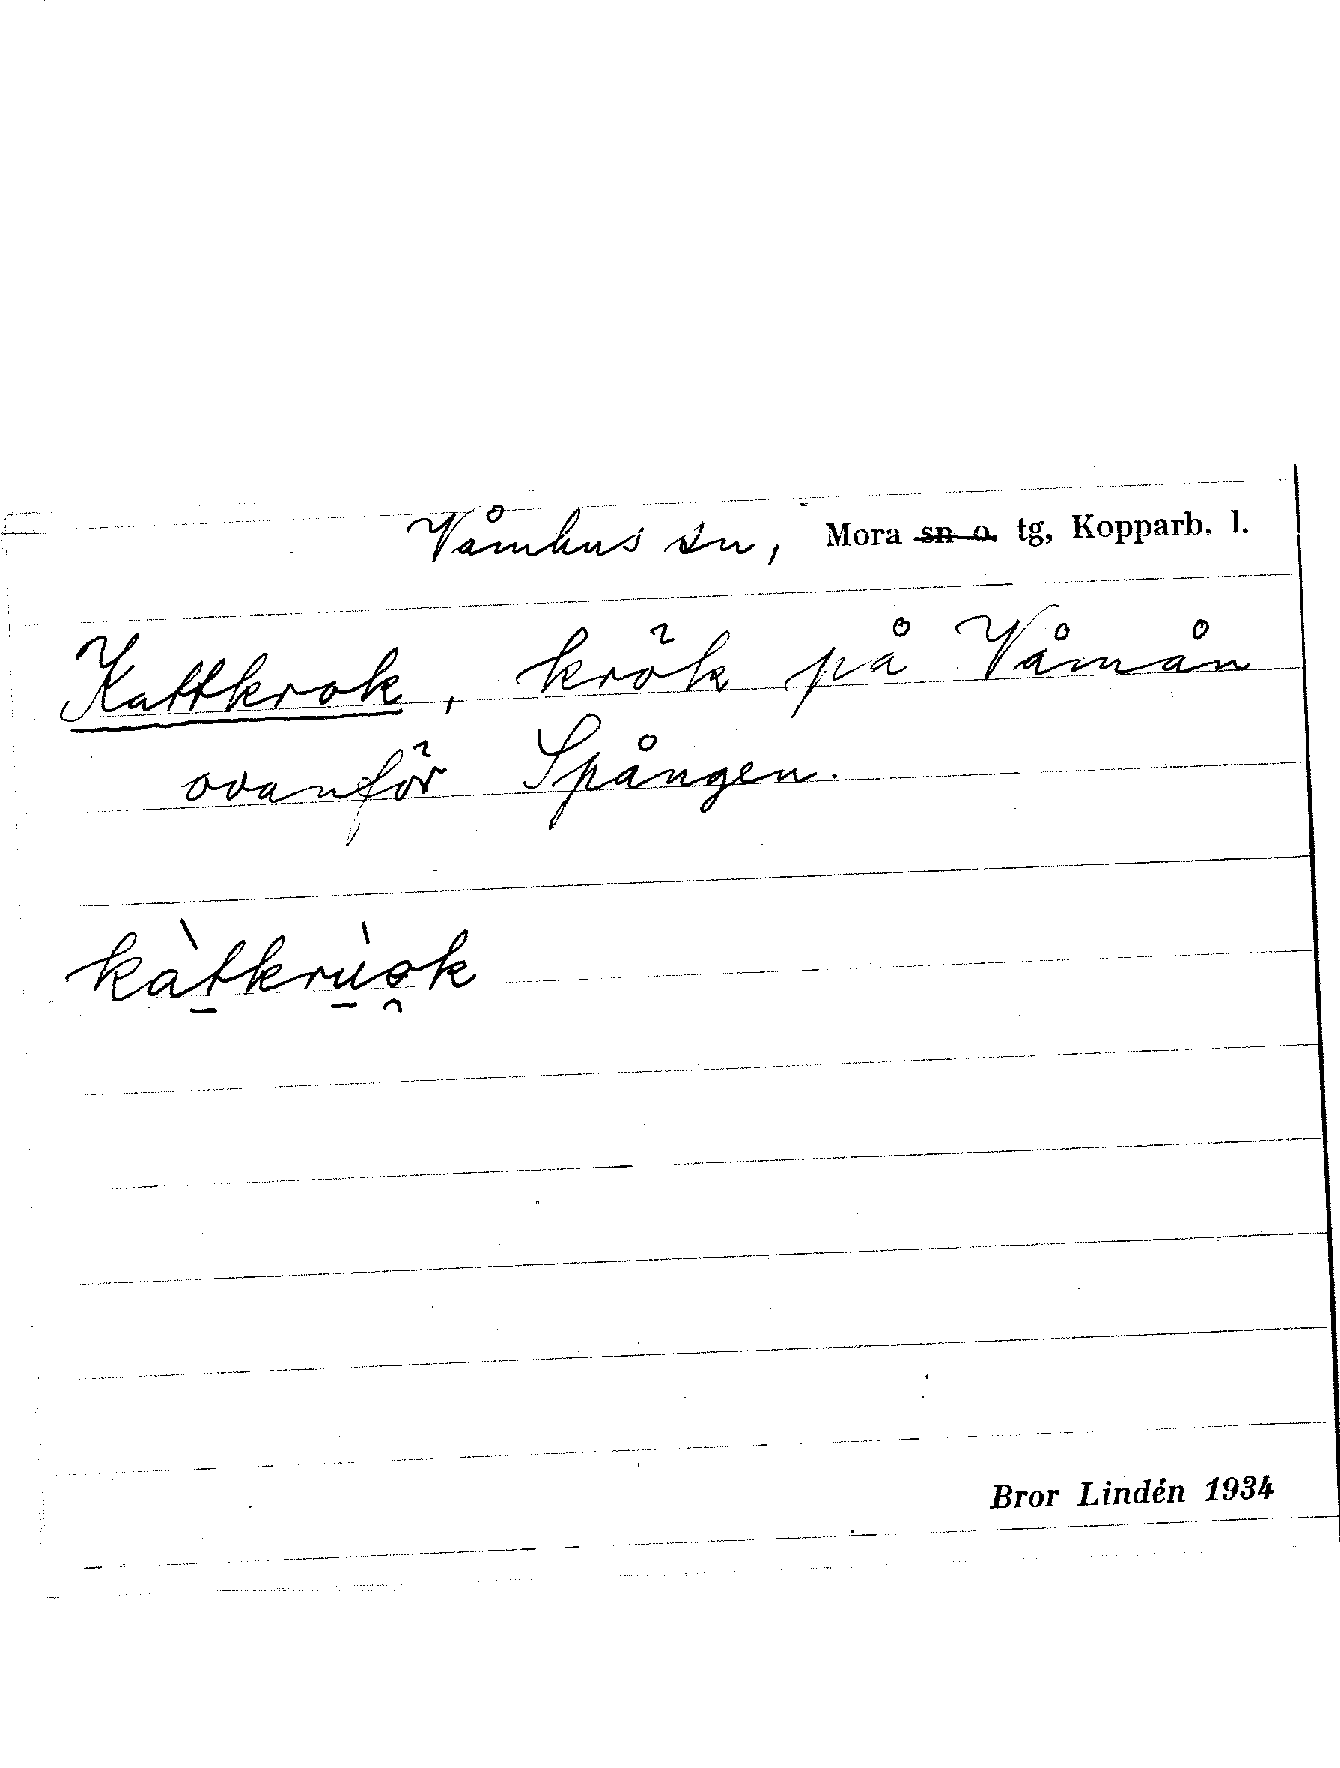 Våmhus sn, Mora ~~sn o.~~ tg, Kopparb. l.
Kattkrok, krök på Våmån
ovanför Spången.
kàt̠krù̠o̯k
Bror Lindén 1934